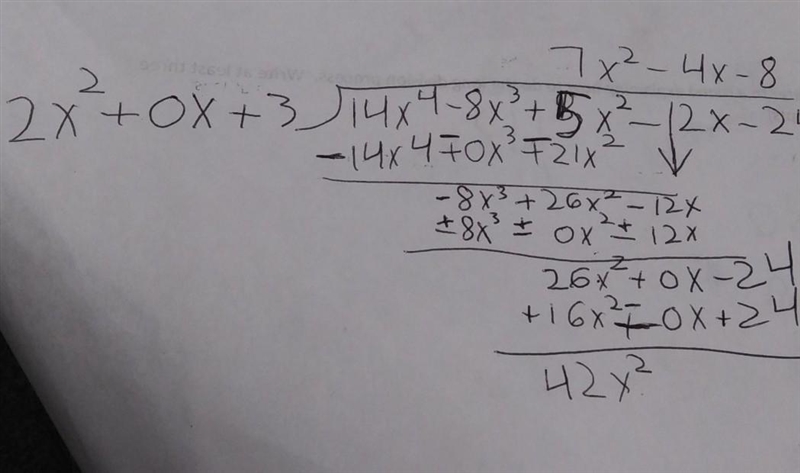 7x² - 4x - 8
2x² + 0x + 3 ) 14x⁴ - 8x³ + 5x² - 12x - 24
- 14x⁴ ∓ 0x³ ∓ 21x²
- 8x³ + 26x² - 12x
± 8x³ ± 0x² ± 12x
26x² + 0x - 24
+ 16x² ∓ 0x + 24
42x²